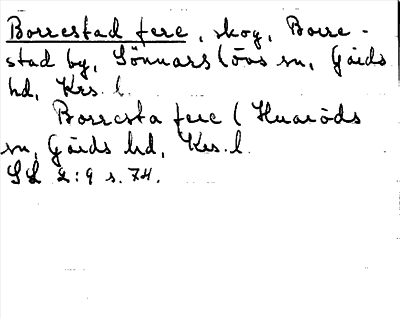 Borrestad fere, skog, Borre-
stad by, Sönnarslövs sn, Gärds
hd, Krs. l.
Borresta fere (Huaröds
sn, Gärds hd, Krs. l.
SL 2:9 s. 74.